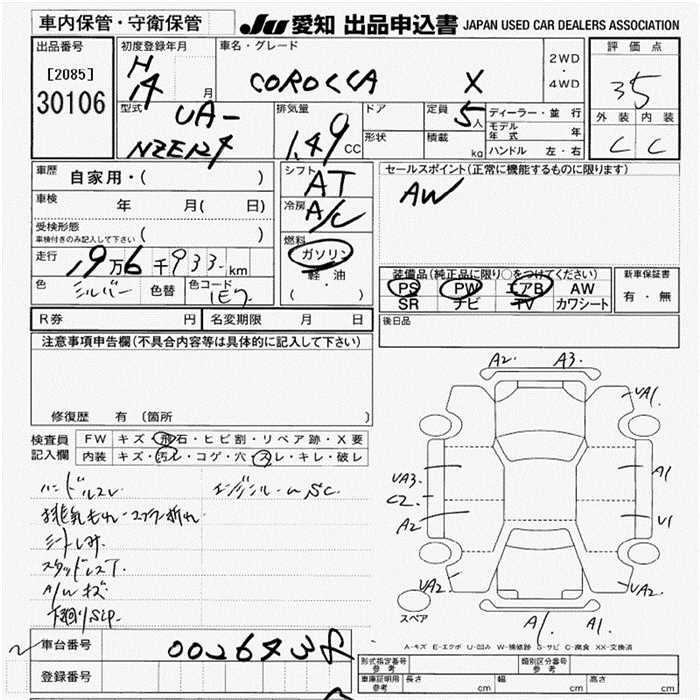 車内保管・守衛保管
JU 愛知 出品申込書 JAPAN USED CAR DEALERS ASSOCIATION
出品番号
[2085]
30106
初度登録年月
H
14 月
車名・グレード
COROLLA X
2WD
・
4WD
評価点
35
外装 内装
C C
型式
UA-
NZE124
排気量
1.49 CC
ドア
形状
定員
5人
積載
kg
ディーラー・並行
モデル年式 年
ハンドル 左・右
車歴
自家用・( )
車検
年 月( 日)
受検形態
車検付きのみ記入して下さい ( )
走行
19万6千933km
色
シルバー
色替
色コード
1E7
シフト
AT
冷房
A/C
燃料
ガソリン
軽・油
( )
セールスポイント(正常に機能するものに限ります)
AW
装備品(純正品に限り○をつけてください)
PS PW エアB AW
SR ナビ TV カワシート
新車保証書
有・無
後日品
R券 円
名変期限 月 日
注意事項申告欄(不具合内容等は具体的に記入して下さい)
修復歴 有 (箇所
検査員
記入欄
FW キズ・飛石・ヒビ割・リペア跡・X要
内装 キズ・汚レ・コゲ・穴・スレ・キレ・破レ
ハンドルスレ
エンジンルームSC.
排気もれ
シートしみ
スタッドレスT.
A/Wキズ
下廻りSip.
A2. A3.
UA1.
UA3.
C2.
A2
A1
U1
UA2
UA2.
A1. A1.
スペア
A-キズ E-エクボ U-凹み W-補修跡 S-サビ C-腐食 XX-交換済
車台番号
0026438
登録番号
形式指定番号
参考
類別区分番号
参考
車庫証明用
参考
長さ cm
幅 cm
高さ cm